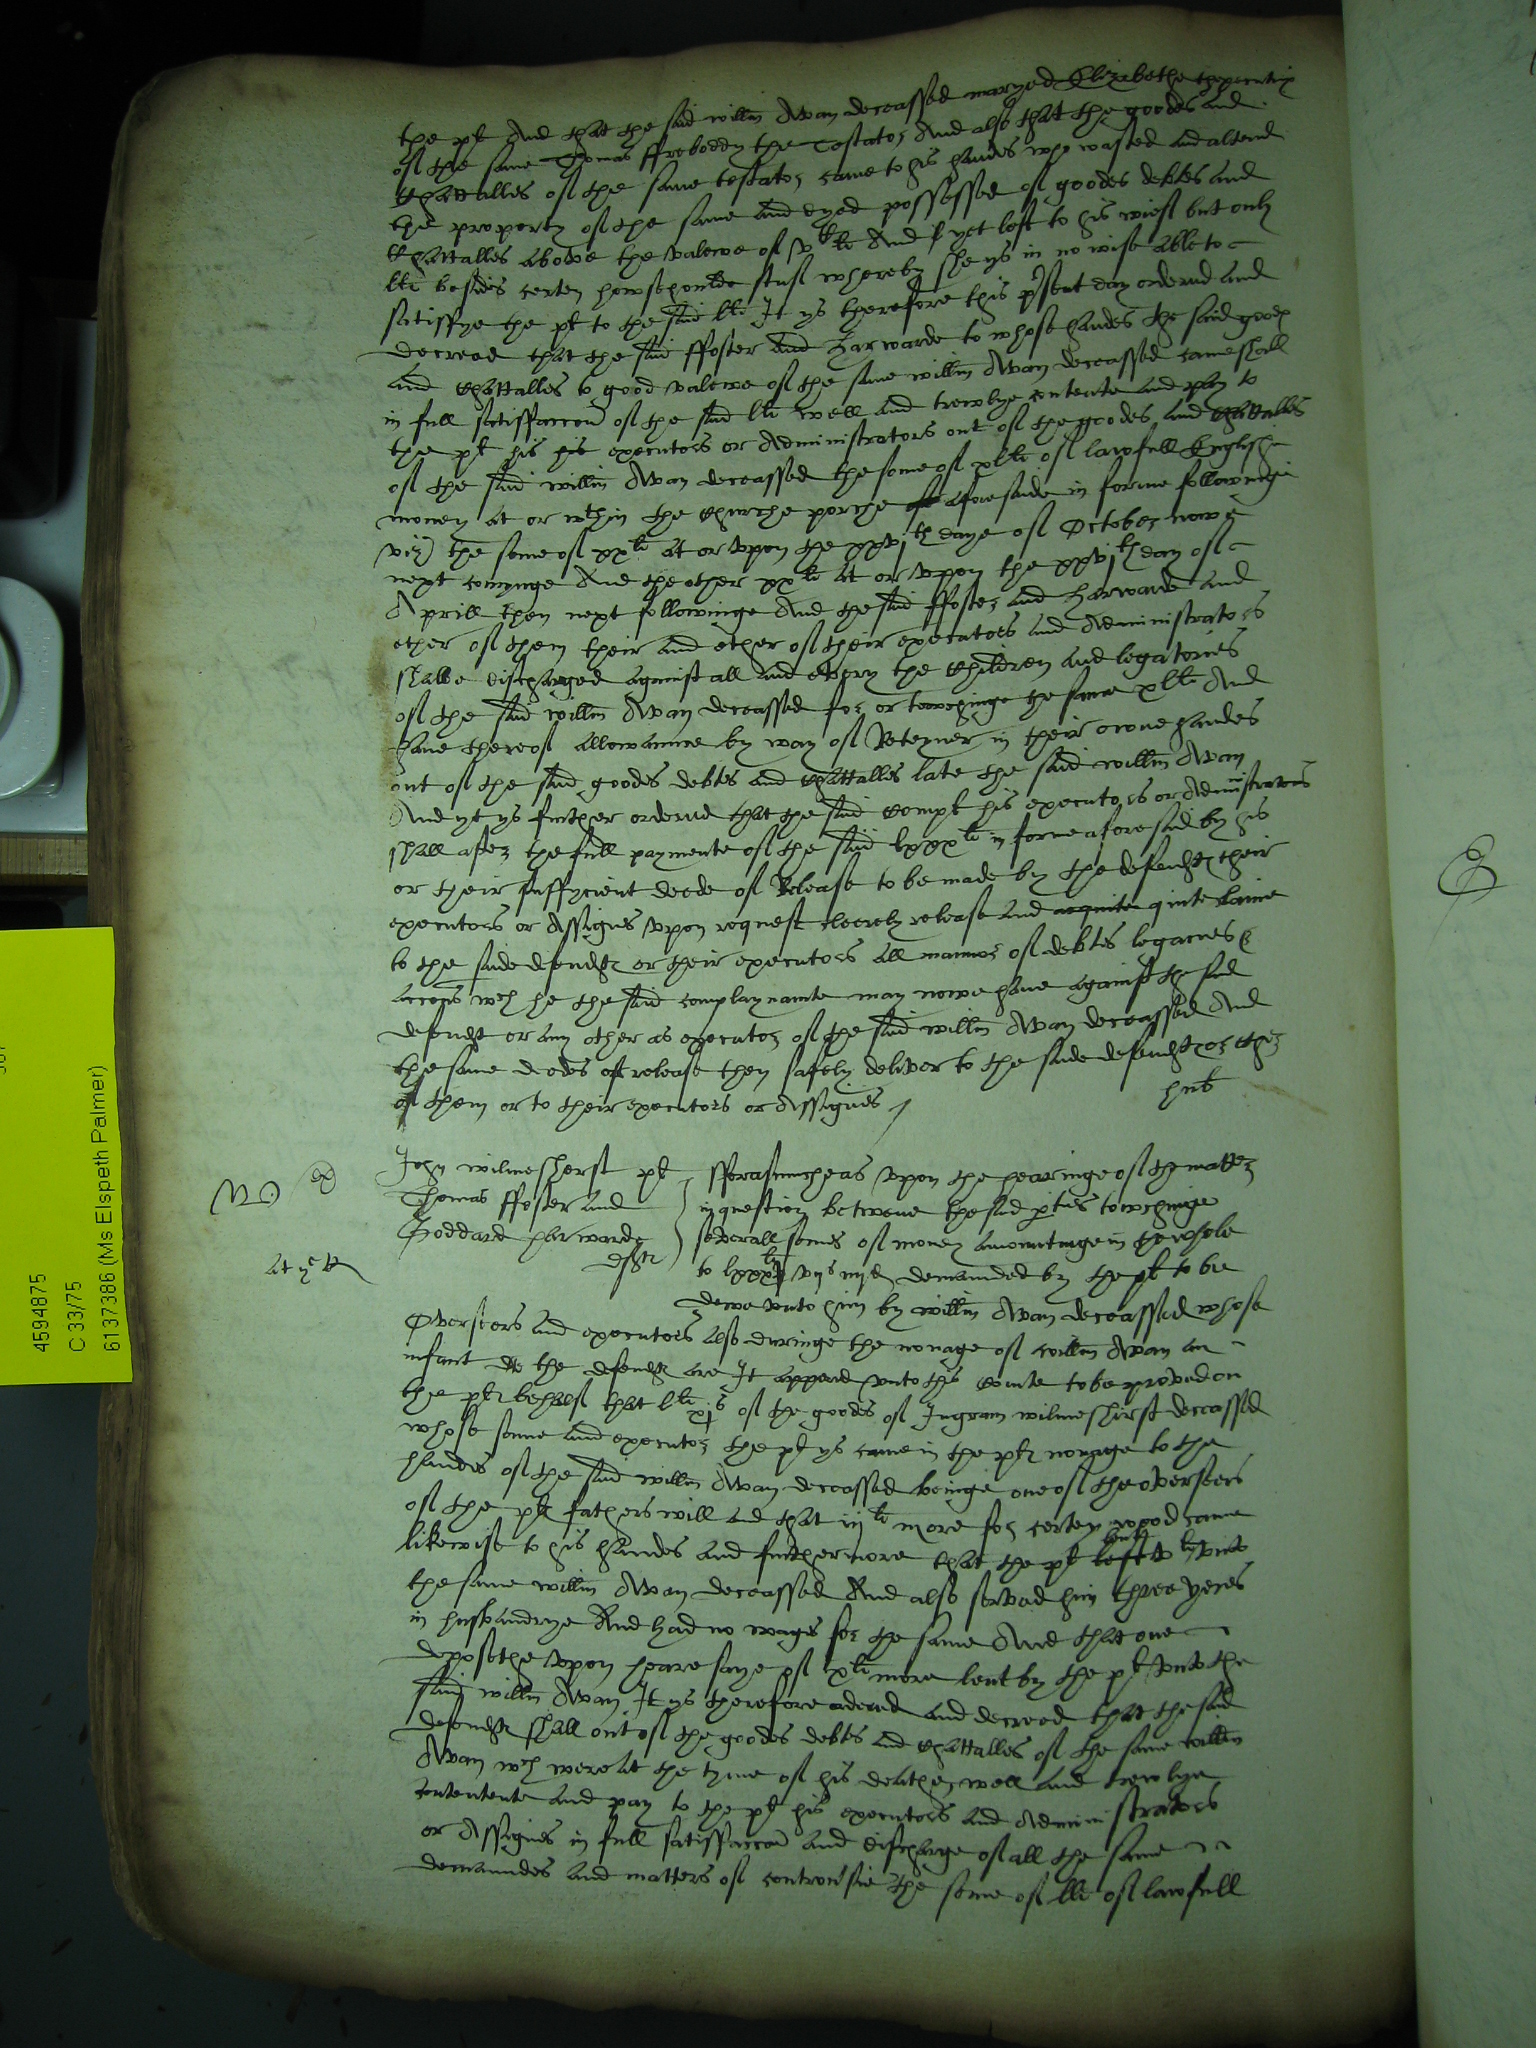 the pl And that the said willm Awan deceassed maryed Elizabethe thexecutrix
of the same Thomas ffreboddy the Testator And also that the goodes and
Chattalles of the same testator came to his handes who wasted and altered
the property of the same and dyed possessed of goodes debtes and
Chattalles above the valewe of And yet left to his wief but only
lli besides certen howsehoulde stuf whereby she ys in no wise able to
satisfye the pl to the said lli It ys therefore this pñsent day ordered and
decreed that the said ffoster and Harwarde to whose handes the said goodes
and Chattalles to good valewe of the same willm Awan deceassed came shall
in full satisfaccon of the said lli well and trewlye contente and pay to
the pl his his executors or Administrators out of the goodes and Chattalles
of the said willm Awan deceassed the some of xlli of lawfull Englishe
money at or wthin the Churche porche aforesaide in forme followinge
viz) the some of xxli at or vpon the xxvjth daye of October nowe
next comynge And the other xxli at or vppon the xxvjth day of
Aprill then next followinge And the said ffoster and Harwarde and
ether of them their and ether of their executors and Administrators
shalbe discharged against all and every the Children and legatories
of the said willm Awan deceassed for or towchinge the same xlli And
have thereof allowaunce by way of Reteyner in their owne handes
out of the said goodes debtes and Chattalles late the said willm Awan
And yt ys further ordered that the said compl his executors or Administrators
shall after the full paymente of the said lxxxli in forme aforesaid by his
or their suffycient deede of Release to be made by the defendtes their
executors or Assignes vpon request cleerely release and acquite quite claime
to the saide defendtes or their executors all manner of debtes legacies &
accons wch he the said complaynante may nowe have against the said
defendtes or any other as executor of the said willm Awan deceassed And
the same deedes of release then safely deliver to the saide defendtes or ether
of them or to their executors or Assignes
hub
John wilmesherst pl
Thomas ffoster and
Goddard Harwarde
deftes
at ye R
fforasmuche as vpon the hearinge of the matter
in question betwene the said parties towchinge
severall somes of money amountinge in the whole
to lxxxli vijs iiijd demaunded by the pl to be
dewe vnto him by willm Awan deceassed whose
Overseers and executors also duringe the nonage of willm Awan an
infant the defendtes are It appered vnto this courte to be proved on
the ples behalf that lli xjs of the goodes of Ingram wilmeshirst deceassed
whose sonne and executor the pl ys came in the ples nonage to the
handes of the said willm Awan deceassed beinge one of the overseers
of the ples fathers will and that iijli more for certen wood came
likewise to his handes and furthermore that the pl left lent vli vnto
the same willm Awan deceassed And also served him three yeres
in husbandrye And had no wages for the same And that one
deposethe vpon hearesaye of xli more lent by the pl vnto the
said willm Awan It ys therefore ordered and decreed that the said
defendtes shall out of the goodes debtes and Chattalles of the same willm
Awan wch were at the tyme of his deathe well and trewlye
contente and pay to the pl his executors and Administrators
or Assignes in full satisfaccon and discharge of all the same
demaundes and matters of controversie the some of lli of lawfull
4594875
C 33/75
6137386 (Ms Elspeth Palmer)